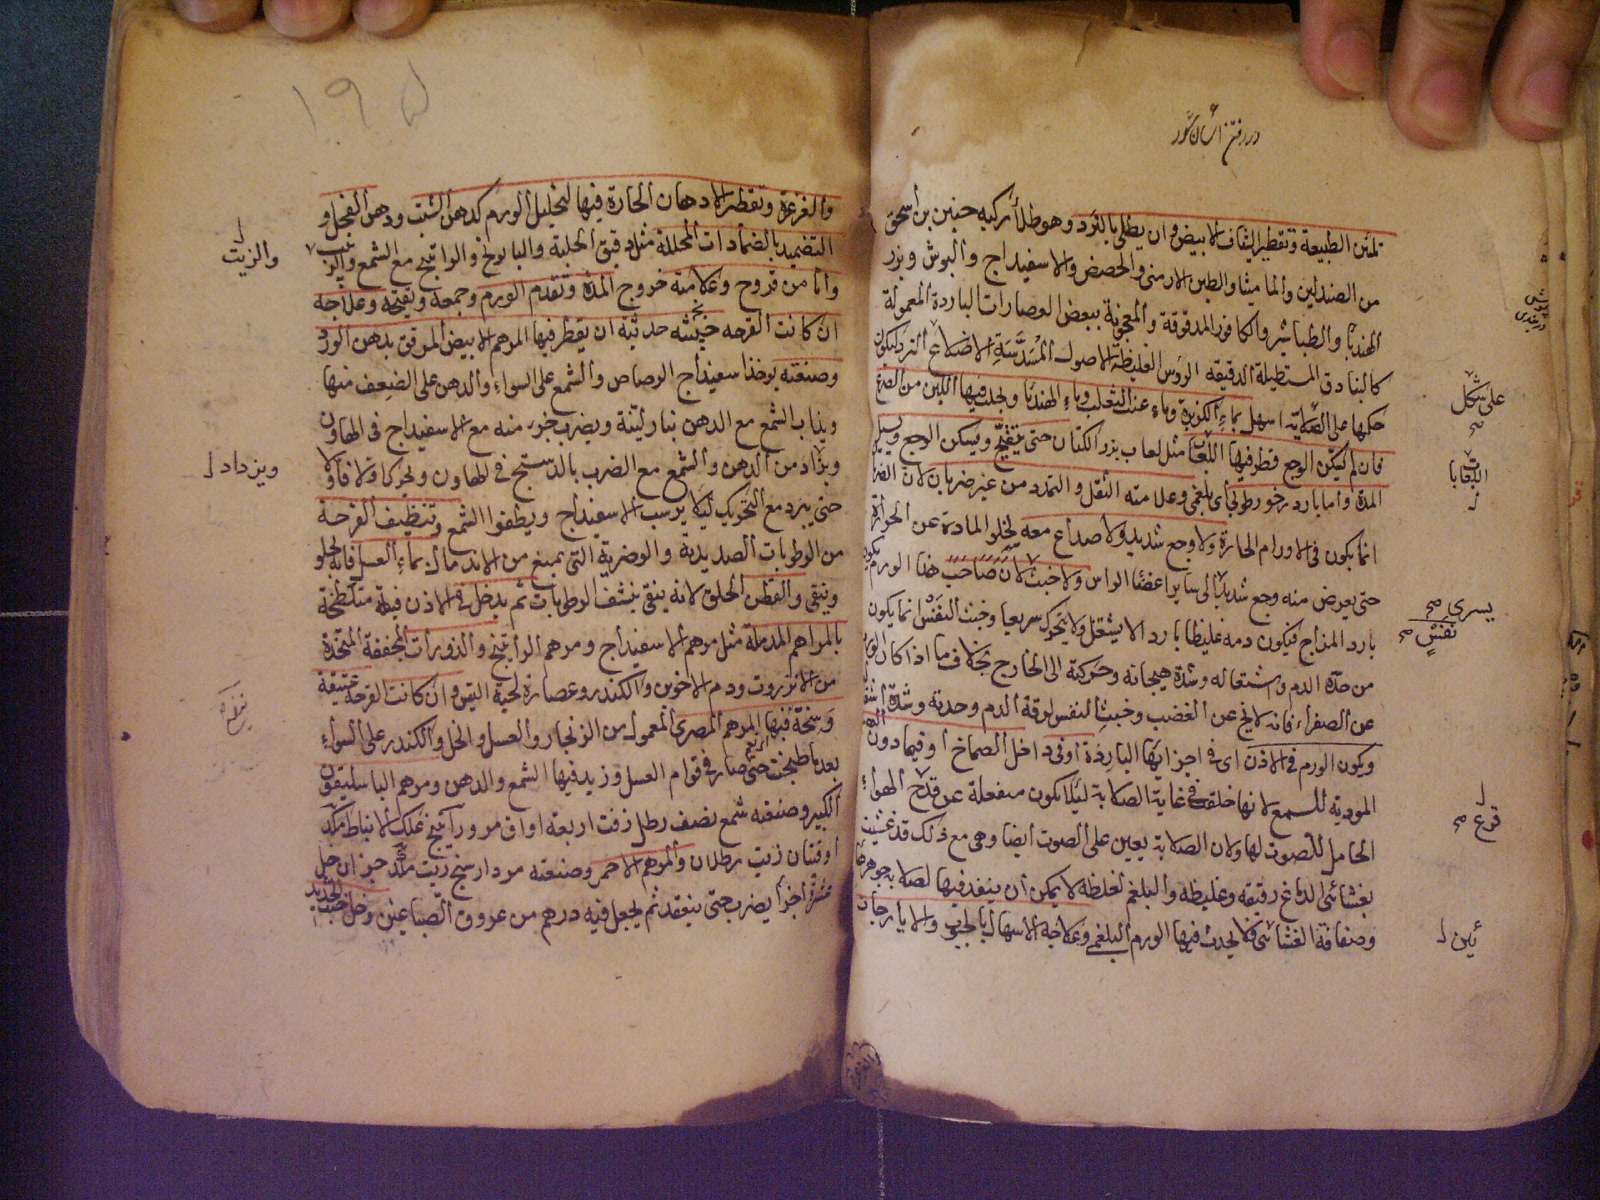 تلين الطبيعة وتقطير الشياف الابيض وان يطلى بالنرد وهو طلاء ركبه حنين بن اسحق
من الصندلين والماميثا والطين الارمنى والحضض والاسفيداج والبوش وبزر
الهندبا والطباشير والكافور المدقوقة والمعجونة ببعض العصارات الباردة المعمولة
كالبنادق المستطيلة الدقيقه الرؤس الغليظة الاصول المسدسة الاضلاع النرد ليكون
حكها على الصلاية اسهل بماء الكزبرة وماء عنب الثعلب وماء الهندبا ويحلب فيها اللبن من الضرع
فان لم يسكن الوجع قطر فيها اللعابات مثل لعاب بزر الكتان حتى يتقيح ويسكن الوجع ويسيل
المدة واما بارد رخو رطوبى اى بلغمى وعلامته الثقل والتمدد من غير ضربان لان
انما يكون فى الاورام الحارة ولا وجع شديد ولا صداع معه لخلو المادة عن الحرارة
حتى يعرض منه وجع شديد الى سائر اعضاء الراس ولا خبث لان صاحب هذا الورم يكون
بارد المزاج فيكون دمه غليظا باردا لا يشتعل ولا يتحرك سريعا وخبث النفس انما يكون
من حدة الدم واشتعاله وشدة هيجانه وحركته الى الخارج بخلاف ما اذا كان الورم
عن الصفراء فانه لا يخ عن الغضب وخبث النفس لرقة الدم وحدته وشدة
ويكون الورم فى الاذن اى فى اجزائها البارزة او فى داخل الصماخ او فيما دون
المودية للسمع لانها خلقت فى غاية الصلابة لئلا تكون منفعلة عن قرع الهواء
الحامل للصوت لها ولان الصلابة يعين على الصوت ايضا وهى مع ذلك قد غشيت
بغشائى الدماغ رقيقه وغليظه والبلغم لغلظه لا يمكن ان ينفذ فيها لصلابة جوهرها
وصفاقة الغشائين فلا يحدث فيها الورم البلغمى وعلاجه الاسهال بالحبوب والايارجات
على شكل صح
اللعابات
يسرى صح
نفس صح
قرع صح
ئين ل
١٩٥
والغرغرة وتقطير الادهان الحارة فيها لتحليل الورم كدهن الشبت ودهن الفجل و
التضميد بالضمادات المحللة مثل دقيق الحلبة والبابونج والراتينج مع الشمع والزيت
واما من قروح وعلامته خروج المدة وتقدم الورم وجمعه وتقيحه وعلاجه
ان كانت القرحه خبيثه حديثة ان يقطر فيها المرهم الابيض المرقق بدهن الورد
وصنعته يوخذ اسفيداج الرصاص والشمع على السواء والدهن على الضعف منها
ويذاب الشمع مع الدهن بنار لينة ويضرب جزء منه مع الاسفيداج فى الهاون
ويزاد من الدهن والشمع مع الضرب بالدستج فى الهاون ويحرك اولا فاولا
حتى يبرد مع التحريك ليلا يرسب الاسفيداج ويطفوا الشمع وتنظيف القرحة
من الرطوبات الصديدية والوضرية التى يمنع من الاندمال بماء العسل فانه يجلو
وينقى والقطن الخلق لانه ينقى ينشف الرطوبات ثم يدخل فى الاذن فتيلة متلطخة
بالمراهم المدملة مثل مرهم الاسفيداج ومرهم الراتينج والذرورات المجففة المتخذة
من الانزروت ودم الاخوين والكندر وعصارة لحية التيس وان كانت القرحة عتيقة
وسخة فبها المرهم المصرى المعمول من الزنجار والعسل والخل والكندر على السواء
بعد ما طبخت حتى صار فى قوام العسل وزيد فيها الشمع والدهن ومرهم الباسليقون
الكبير وصنعته شمع نصف رطل زفت اربعة اواق مر وراتينج علك الانباط من كل
اوقتان زيت رطلان والمرهم الاحمر وصنعته مردارسنج زيت من كل جزء ان خل
عشرة اجزا يضرب حتى ينعقد ثم يجعل فيه درهم من عروق الصباغين وخل خبث الحديد
والزيت
ويزداد ل